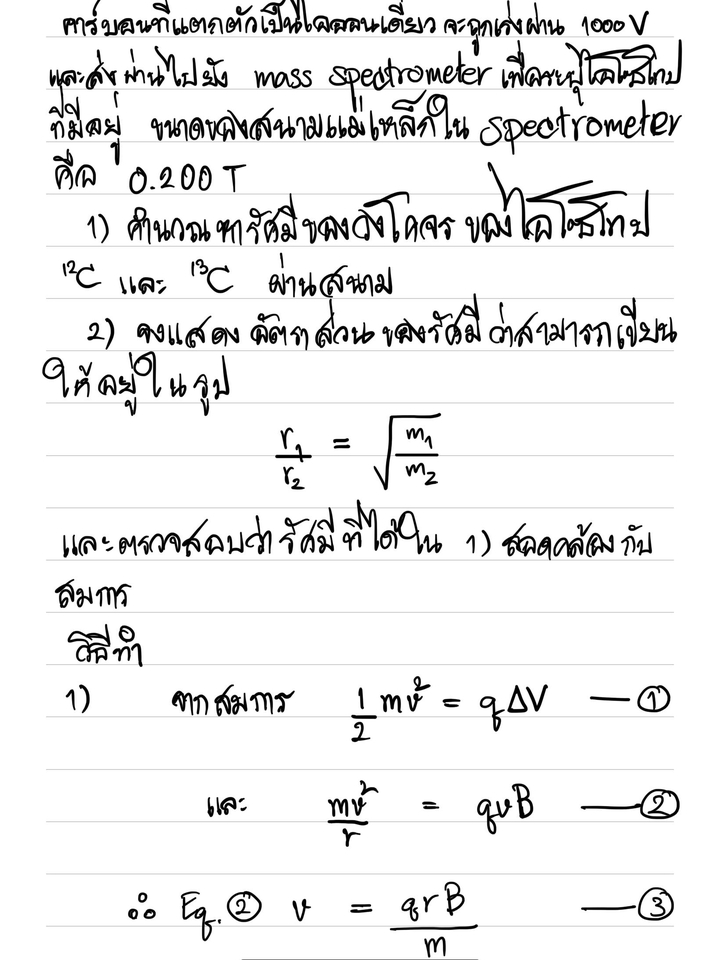 คาร์บอนที่แตกตัวเป็นไอออนเดี่ยว จะถูกเร่งผ่าน 1000 V
และส่งผ่านไปยัง mass spectrometer เพื่อระบุไอโซโทป
ที่มีอยู่ ขนาดของสนามแม่เหล็กใน spectrometer
คือ 0.200 T
1) คำนวณหารัศมีของวงโคจร ของไอโซโทป
¹²C และ ¹³C ผ่านสนาม
2) จงแสดงอัตราส่วนของรัศมีว่าสามารถเขียน
ให้อยู่ในรูป
r₁/r₂ = √(m₁/m₂)
และตรวจสอบว่ารัศมีที่ได้ใน 1) สอดคล้องกับ
สมการ
วิธีทำ
1) จากสมการ 1/2 mv² = qΔV — ①
และ mv²/r = qvB — ②
∴ Eq. ② v = qrB/m — ③